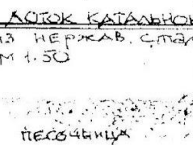 ЛОТОК КАТАЛЬНО
ИЗ НЕРЖАВ. СТАЛ
М 1:50
ПЕСОЧНИЦА